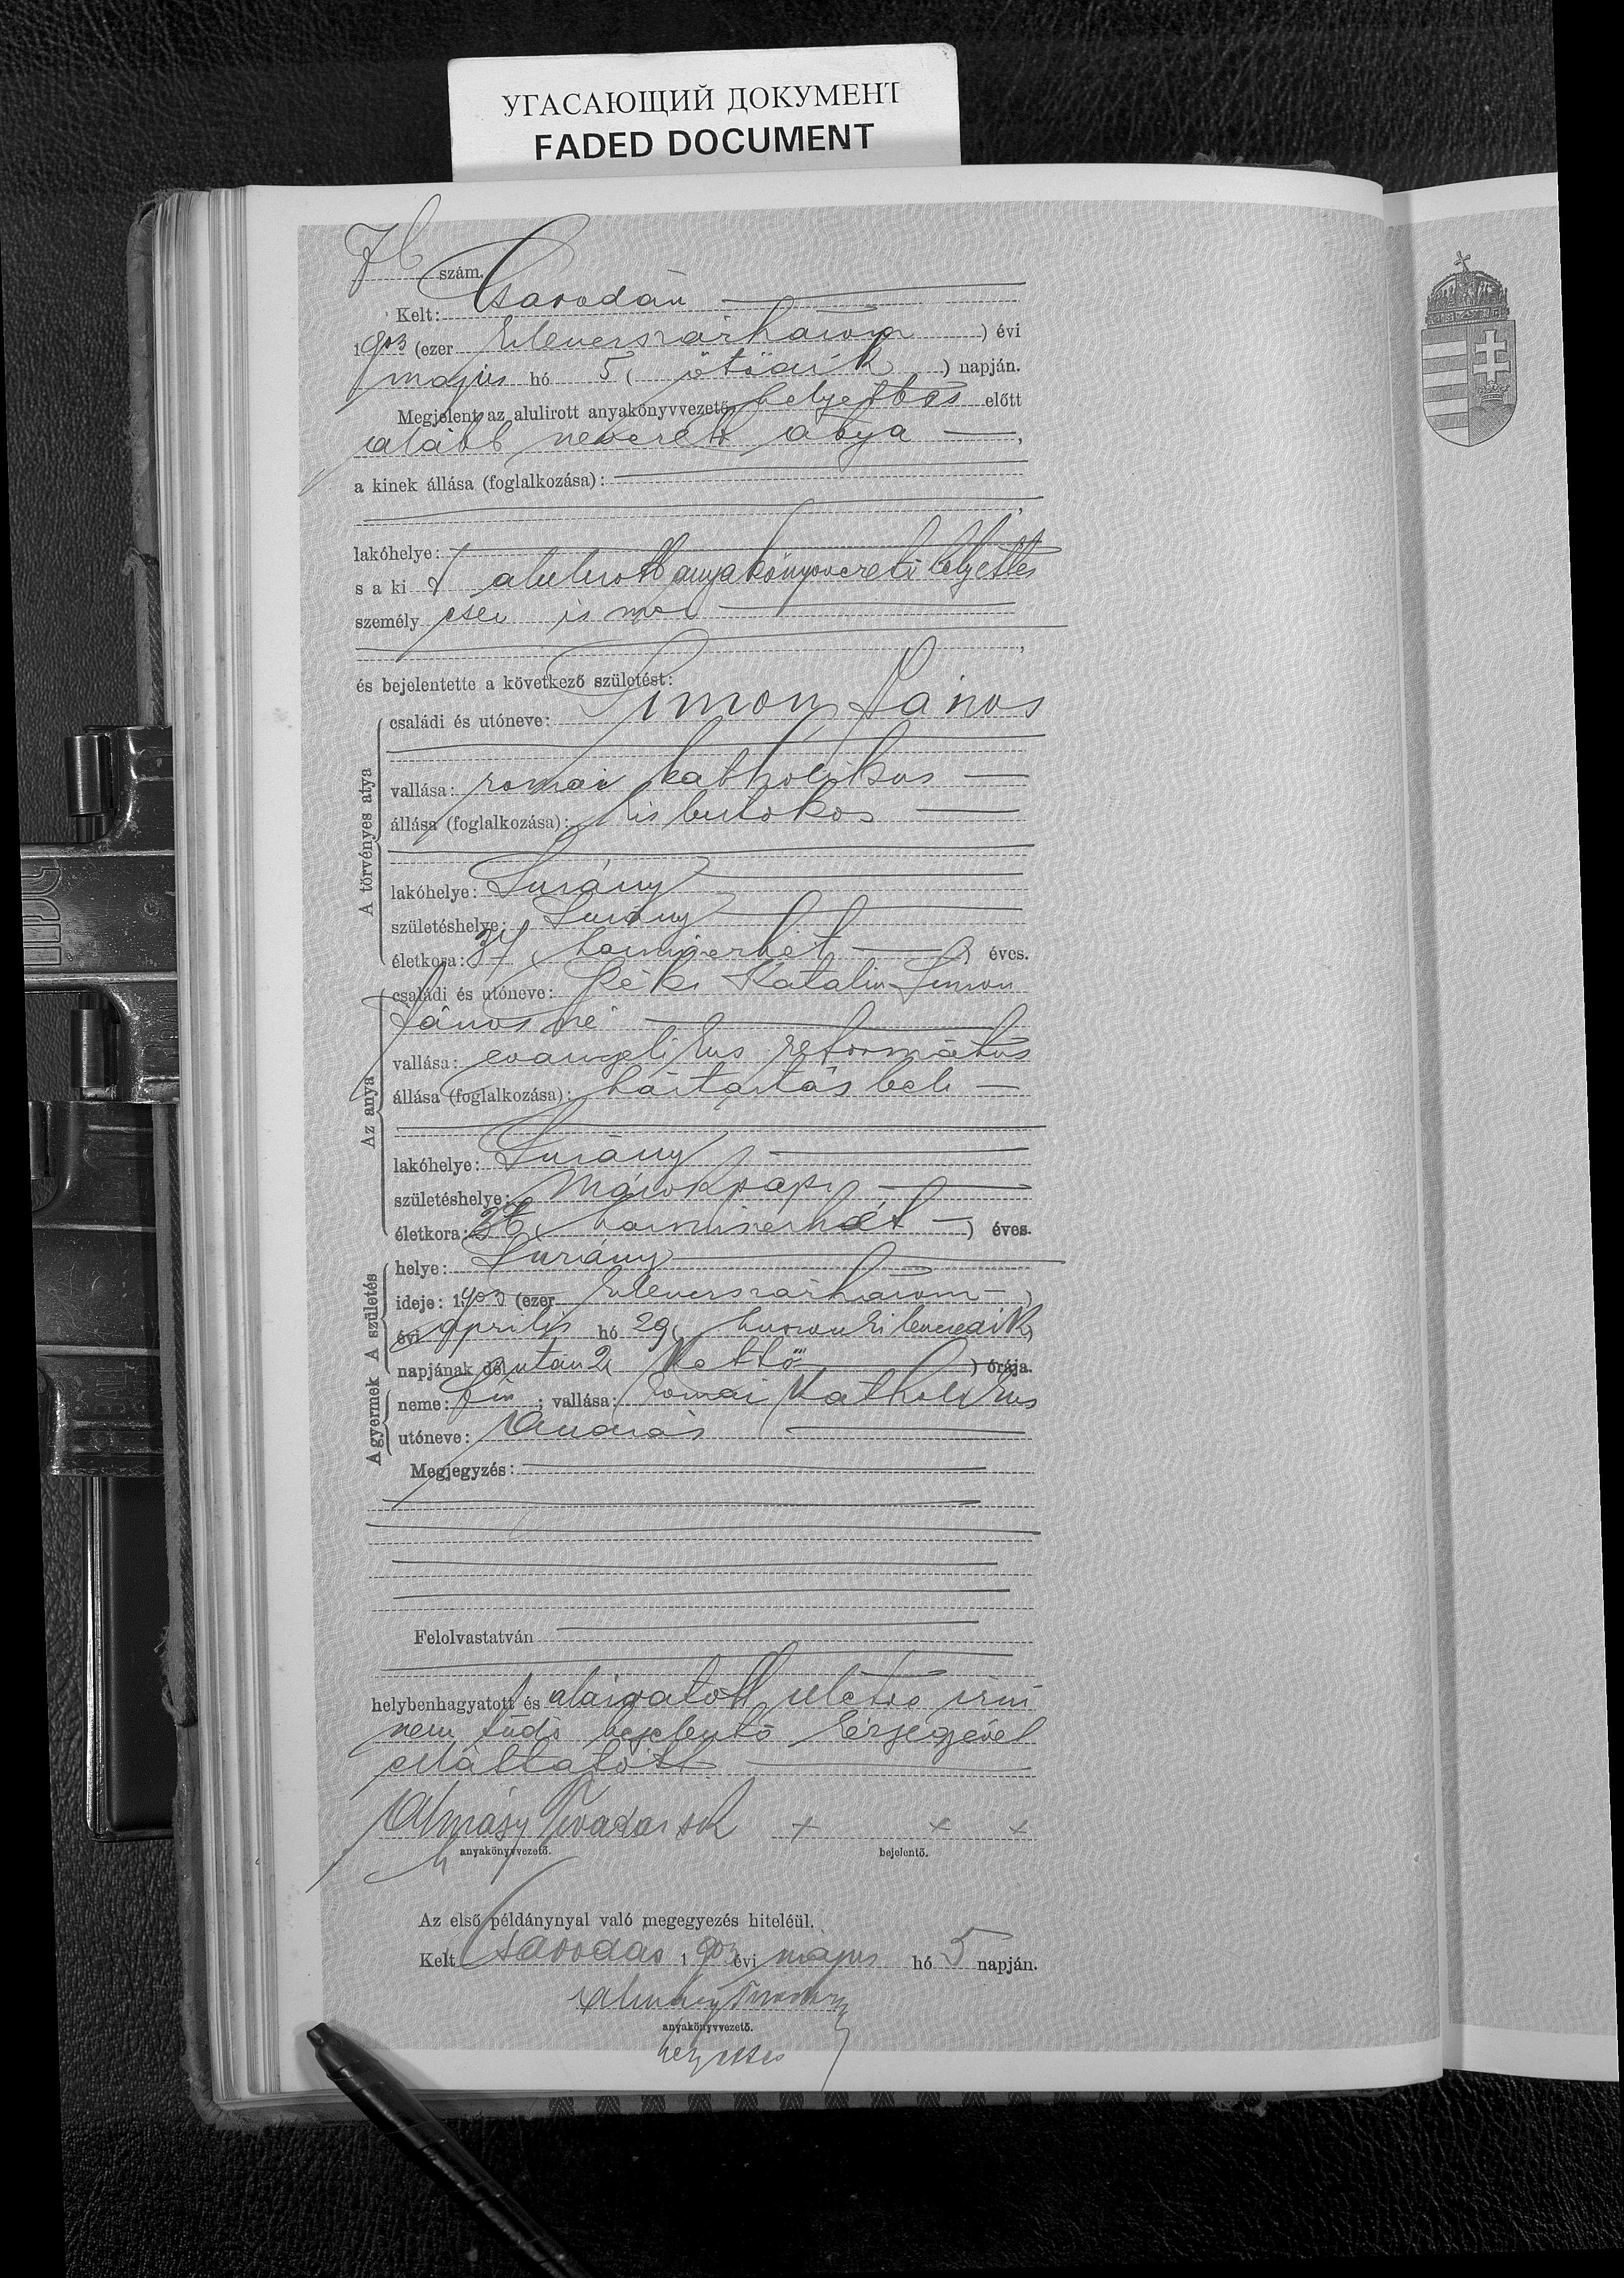 УГАСАЮЩИЙ ДОКУМЕНТ
FADED DOCUMENT
76 szám.
Kelt: Csarodán
1903 (ezer kilencszázhárom) évi
május hó 5 (ötödik) napján.
Megjelent az alulirott anyakönyvvezető helyettes előtt
alább nevezett atya,
a kinek állása (foglalkozása):
lakóhelye:
s a ki t alulirott anyakönyvvezető helyettes
személy esen ismer
és bejelentette a következő születést:
A törvényes atya
családi és utóneve: Simon János
vallása: romai katholikus
állása (foglalkozása): kis birtokos
lakóhelye: Surány
születéshelye: Surány
életkora: 37 (harminczhét) éves.
Az anya
családi és utóneve: Kéki Katalin Simon
Jánosné
vallása: evangelikus református
állása (foglalkozása): háztartásbeli
lakóhelye: Surány
születéshelye: Márokpapi
életkora: (harminczhat) éves.
A születés
helye: Surány
ideje: 1903 (ezer kilencszázhárom)
évi április hó 29 (huszonkilenczedik)
napjának délután 2 (kettő) órája.
A gyermek
neme: fiu; vallása: romai katholikus
utóneve: András
Megjegyzés:
Felolvastatván
helybenhagyatott és aláiratott illetve irni
nem tudó bejelentő kézjegyével
elláttatott
Almásy Tivadar sk + + +
h anyakönyvvezető. bejelentő.
Az első példánynyal való megegyezés hiteléül.
Kelt Csarodán 1903 évi május hó 5 napján.
Almásy Tivadar
anyakönyvvezető.
helyettes